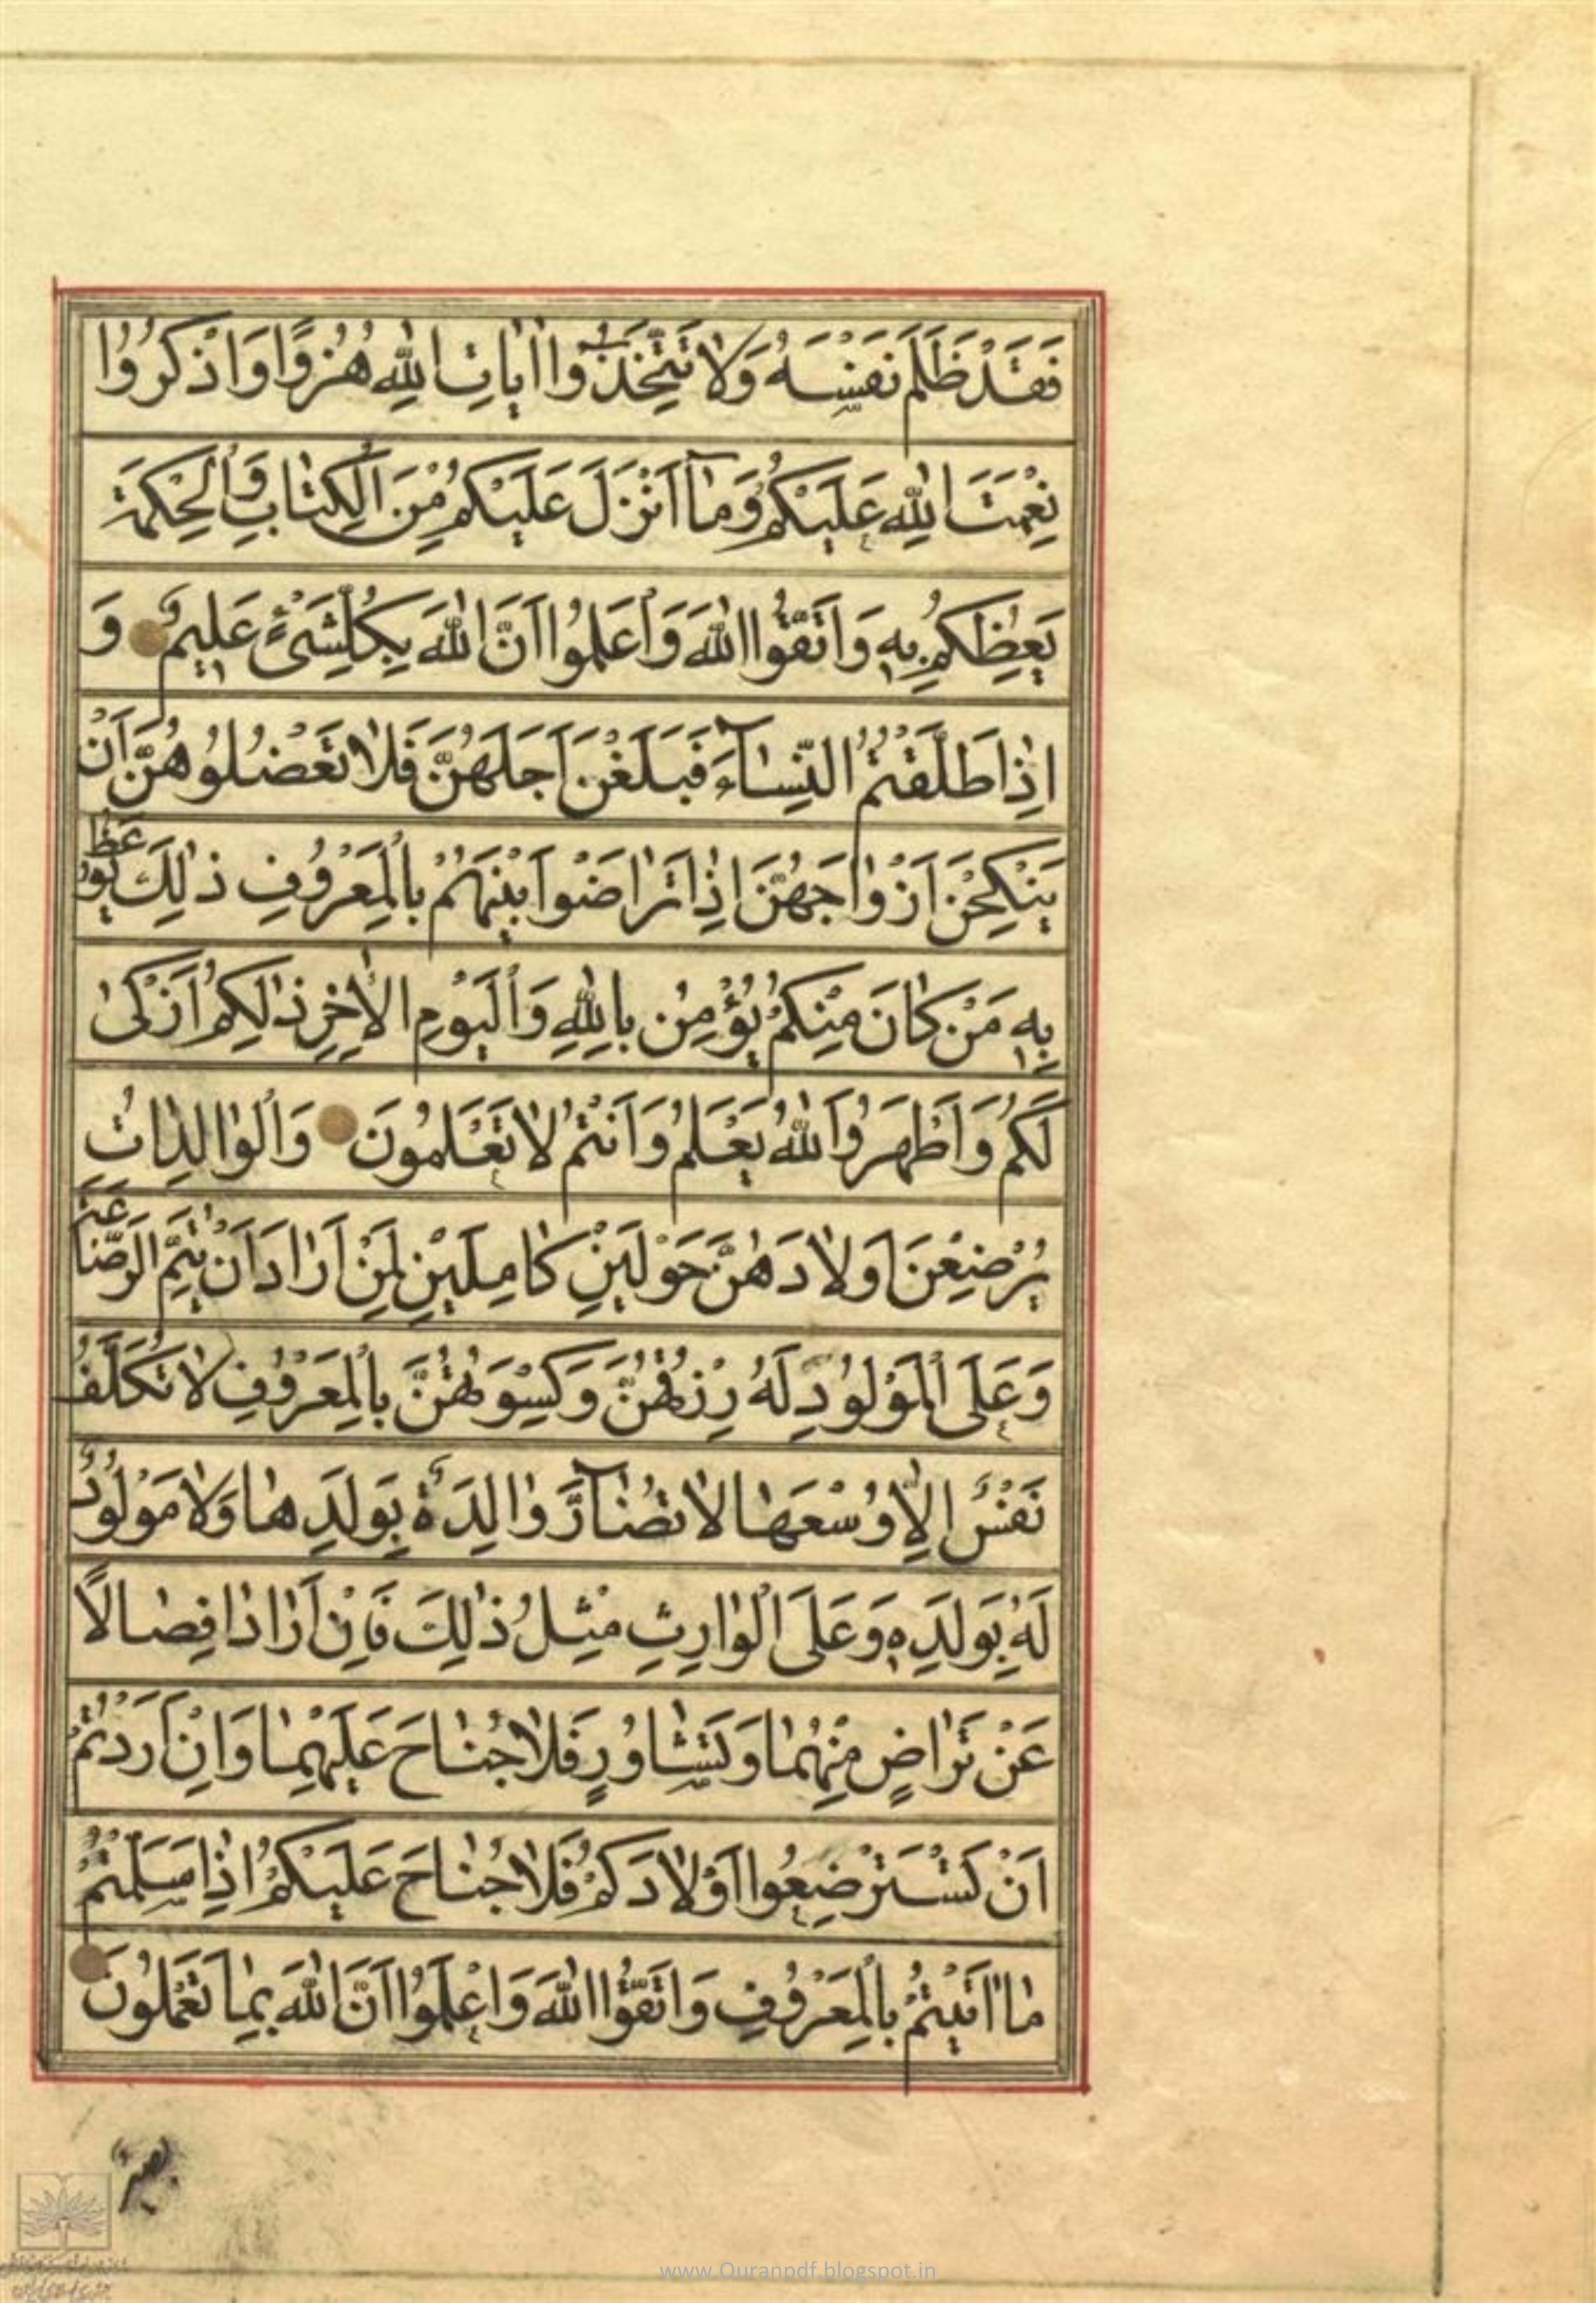 فَقَدْ ظَلَمَ نَفْسَهُ وَلَا تَتَّخِذُوا اٰيَاتِ اللّٰهِ هُزُوًا وَاذْكُرُوا
نِعْمَتَ اللّٰهِ عَلَيْكُمْ وَمَآ اَنْزَلَ عَلَيْكُمْ مِنَ الْكِتَابِ وَالْحِكْمَةِ
يَعِظُكُمْ بِهِ وَاتَّقُوا اللّٰهَ وَاعْلَمُوا اَنَّ اللّٰهَ بِكُلِّ شَيْءٍ عَلِيمٌ وَ
اِذَا طَلَّقْتُمُ النِّسَآءَ فَبَلَغْنَ اَجَلَهُنَّ فَلَا تَعْضُلُوهُنَّ اَنْ
يَنْكِحْنَ اَزْوَاجَهُنَّ اِذَا تَرَاضَوْا بَيْنَهُمْ بِالْمَعْرُوفِ ذٰلِكَ يُوعَظُ
بِهِ مَنْ كَانَ مِنْكُمْ يُؤْمِنُ بِاللّٰهِ وَالْيَوْمِ الْاٰخِرِ ذٰلِكُمْ اَزْكٰى
لَكُمْ وَاَطْهَرُ وَاللّٰهُ يَعْلَمُ وَاَنْتُمْ لَا تَعْلَمُونَ وَالْوَالِدَاتُ
يُرْضِعْنَ اَوْلَادَهُنَّ حَوْلَيْنِ كَامِلَيْنِ لِمَنْ اَرَادَ اَنْ يُتِمَّ الرَّضَاعَةَ
وَعَلَى الْمَوْلُودِ لَهُ رِزْقُهُنَّ وَكِسْوَتُهُنَّ بِالْمَعْرُوفِ لَا تُكَلَّفُ
نَفْسٌ اِلَّا وُسْعَهَا لَا تُضَآرَّ وَالِدَةٌ بِوَلَدِهَا وَلَا مَوْلُودٌ
لَهُ بِوَلَدِهِ وَعَلَى الْوَارِثِ مِثْلُ ذٰلِكَ فَاِنْ اَرَادَا فِصَالًا
عَنْ تَرَاضٍ مِنْهُمَا وَتَشَاوُرٍ فَلَا جُنَاحَ عَلَيْهِمَا وَاِنْ اَرَدْتُمْ
اَنْ تَسْتَرْضِعُوا اَوْلَادَكُمْ فَلَا جُنَاحَ عَلَيْكُمْ اِذَا سَلَّمْتُمْ
مَا اٰتَيْتُمْ بِالْمَعْرُوفِ وَاتَّقُوا اللّٰهَ وَاعْلَمُوا اَنَّ اللّٰهَ بِمَا تَعْمَلُونَ
www.Quranpdf.blogspot.in